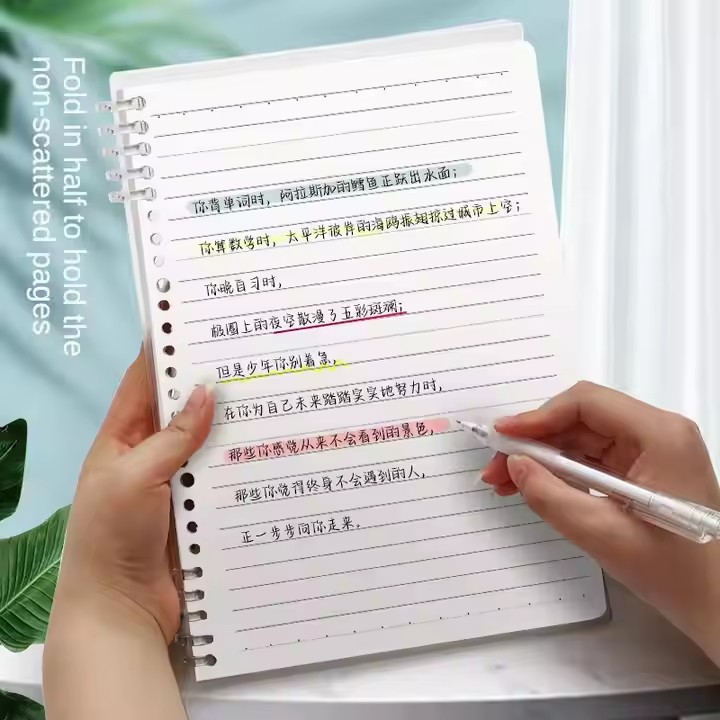 Fold in half to hold the
non-scattered pages
你背单词时，阿拉斯加的鳕鱼正跃出水面；
你算数学时，太平洋彼岸的海鸥振翅掠过城市上空；
你晚自习时，
极圈上的夜空散漫了五彩斑斓；
但是少年你别着急，
在你为自己未来踏踏实实地努力时，
那些你感觉从来不会看到的景色，
那些你觉得终身不会遇到的人，
正一步步向你走来。